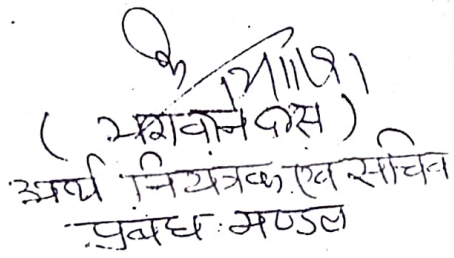 ( भगवान दास )
अर्थ नियंत्रक एवं सचिव
प्रबंध मण्डल